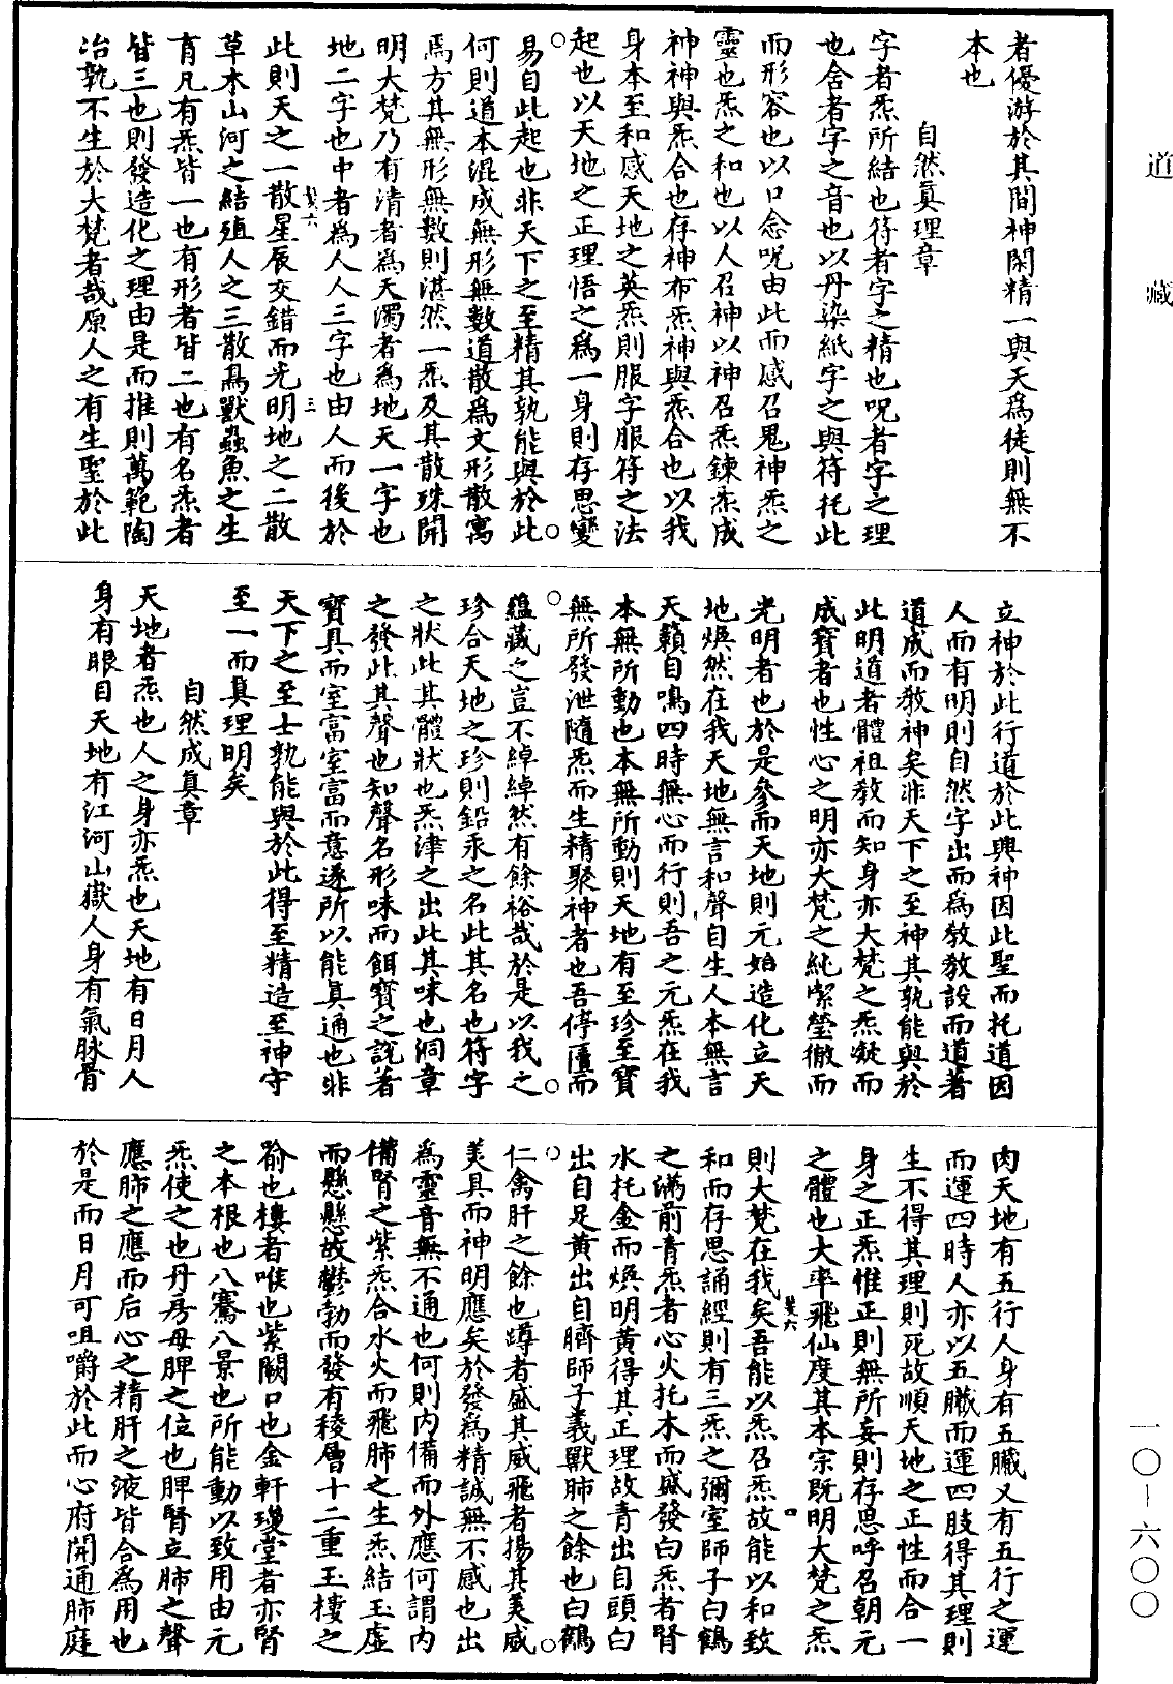 道藏
者優游於其間神閑精一與天為徒則無不
本也
自然真理章
字者炁所結也符者字之精也呪者字之理
也舍者字之音也以丹染紙字之與符托此
而形容也以口念呪由此而感召鬼神炁之
靈也炁之和也以人召神以神召炁鍊炁成
神神與炁合也存神布炁神與炁合也以我
身本至和感天地之英炁則服字服符之法
起也以天地之正理悟之為一身則存思變
易自此起也非天下之至精其孰能與於此
何則道本混成無形無數道散為文形散寓
焉方其無形無數則湛然一炁及其散殊開
明大梵乃有清者為天濁者為地天一字也
地二字也中者為人人三字也由人而後於
此則天之一散星辰交錯而光明地之二散
草木山河之結殖人之三散鳥獸蟲魚之生
育凡有炁皆一也有形者皆二也有名炁者
皆三也則發造化之理由是而推則萬範陶
冶孰不生於大梵者哉原人之有生聖於此
立神於此行道於此興神因此聖而托道因
人而有明則自然字出而為教教設而道著
道成而教神矣非天下之至神其孰能與於
此明道者體祖教而知身亦大梵之炁凝而
成寶者也性心之明亦大梵之純潔瑩徹而
光明者也於是參而天地則元始造化立天
地煥然在我天地無言和聲自生人本無言
天籟自鳴四時無心而行則吾之元炁在我
本無所動也本無所動則天地有至珍至寶
無所發泄隨炁而生精聚神者也吾停匱而
蘊藏之豈不綽綽然有餘裕哉於是以我之
珍合天地之珍則鉛汞之名此其名也符字
之狀此其體狀也炁津之出此其味也洞章
之發此其聲也知聲名形味而餌寶之說著
寶具而室富室富而意遂所以能真通也非
天下之至士孰能與於此得至精造至神守
至一而真理明矣
自然成真章
天地者炁也人之身亦炁也天地有日月人
身有眼目天地有江河山嶽人身有氣脉骨
肉天地有五行人身有五臟又有五行之運
而運四時人亦以五臟而運四肢得其理則
生不得其理則死故順天地之正性而合一
身之正炁惟正則無所妄則存思呼召朝元
之體也大率飛仙度其本宗既明大梵之炁
則大梵在我矣吾能以炁召炁故能以和致
和而存思誦經則有三炁之彌室師子白鶴
之滿前青炁者心火托木而盛發白炁者腎
水托金而煥明黃得其正理故青出自頭白
出自足黃出自臍師子義獸肺之餘也白鶴
仁禽肝之餘也蹲者盛其威飛者揚其美威
美具而神明應矣於發為精誠無不感也出
為靈音無不通也何則內備而外應何謂內
備腎之紫炁合水火而飛肺之生炁結玉虛
而懸懸故鬱勃而發有稜層十二重玉樓之
喻也樓者喉也紫闕口也金軒瓊堂者亦腎
之本根也八騫八景也所能動以致用由元
炁使之也丹房母脾之位也脾腎立肺之聲
應肺之應而后心之精肝之液皆合為用也
於是而日月可咀嚼於此而心府開通肺庭
一〇-六〇〇